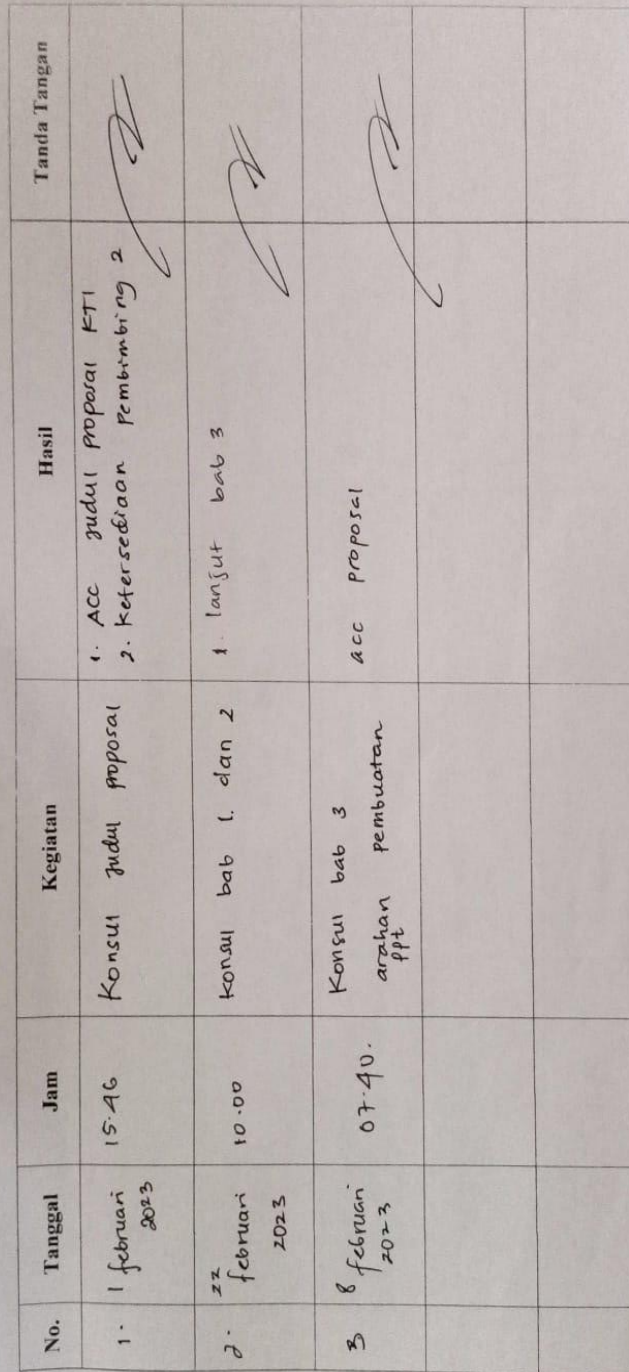 No. Tanggal Jam Kegiatan Hasil Tanda Tangan
1. 1 februari 2023 15.46 Konsul Judul proposal 1. ACC Judul proposal KTI
2. Ketersediaan Pembimbing 2
2. 22 februari 2023 10.00 Konsul bab 1. dan 2 1. lanjut bab 3
3 8 februari 2023 07.40. Konsul bab 3 acc proposal
arahan pembuatan
ppt